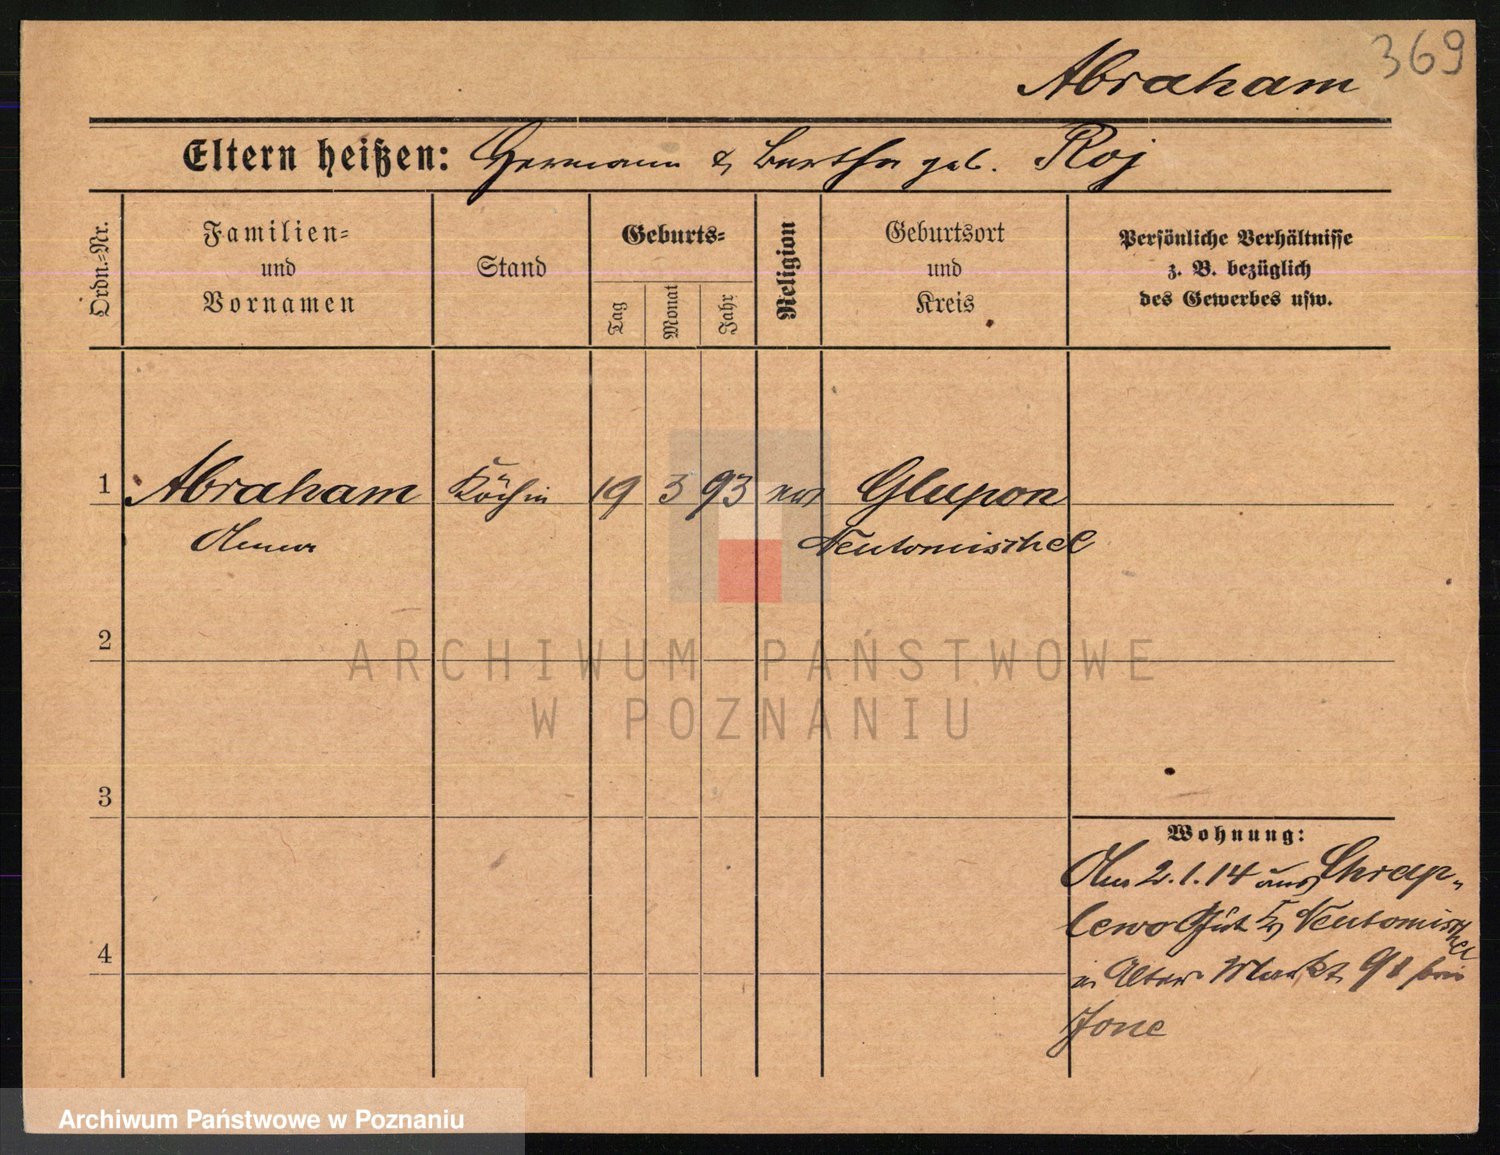 369
Abraham
Eltern heißen: Hermann & Bertha geb. Roj
Ordn.-Nr.
Familien-
und
Vornamen
Stand
Geburts-
Tag
Monat
Jahr
Religion
Geburtsort
und
Kreis
Persönliche Verhältnisse
z. B. bezüglich
des Gewerbes usw.
1 Abraham Köchin 19 3 93 Glupon
Neutomischel
2
3
4
Wohnung:
2.1.14 aus Chrap-
lewo Gut Neutomischel
Alter Markt 98 bei
Jone
ARCHIWUM PAŃSTWOWE
W POZNANIU
Archiwum Państwowe w Poznaniu